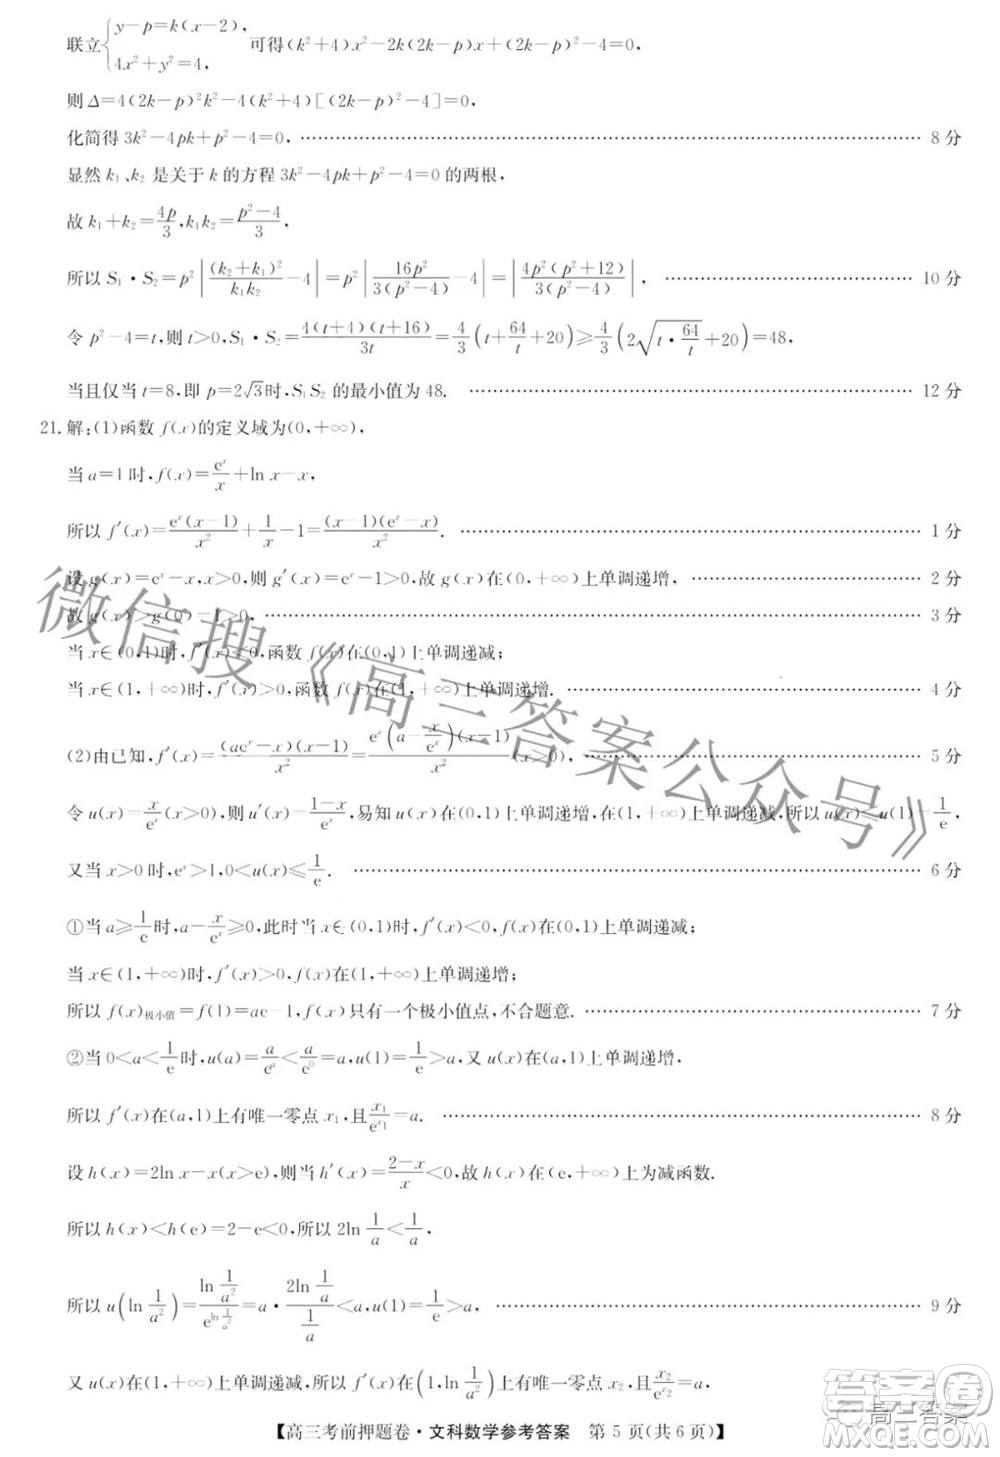 联立{y-p=k(x-2), 4x²+y²=4, 可得(k²+4)x²-2k(2k-p)x+(2k-p)²-4=0,
则 Δ=4(2k-p)²k²-4(k²+4)[(2k-p)²-4]=0,
化简得 3k²-4pk+p²-4=0, …… 8 分
显然 k₁、k₂ 是关于 k 的方程 3k²-4pk+p²-4=0 的两根,
故 k₁+k₂=4p/3, k₁k₂=(p²-4)/3.
所以 S₁·S₂=p²|(k₂+k₁)²/(k₁k₂)-4|=p²|16p²/(3(p²-4))-4|=|4p²(p²+12)/(3(p²-4))|, …… 10 分
令 p²-4=t,则 t>0,S₁·S₂=4(t+4)(t+16)/(3t)=4/3(t+64/t+20)≥4/3(2√(t·64/t)+20)=48,
当且仅当 t=8,即 p=2√3时,S₁S₂ 的最小值为 48. …… 12 分
21.解:(1)函数 f(x)的定义域为(0,+∞),
当 a=1 时,f(x)=eˣ/x+ln x-x,
所以 f′(x)=eˣ(x-1)/x²+1/x-1=(x-1)(eˣ-x)/x². …… 1 分
设 g(x)=eˣ-x,x>0,则 g′(x)=eˣ-1>0,故 g(x)在(0,+∞)上单调递增, …… 2 分
故 g(x)>g(0)=1>0, …… 3 分
当 x∈(0,1)时,f′(x)<0,函数 f(x)在(0,1)上单调递减;
当 x∈(1,+∞)时,f′(x)>0,函数 f(x)在(1,+∞)上单调递增. …… 4 分
(2)由已知,f′(x)=(aeˣ-x)(x-1)/x²=eˣ(a-x/eˣ)(x-1)/x²(x>0), …… 5 分
令 u(x)=x/eˣ,则 u′(x)=(1-x)/eˣ,易知 u(x)在(0,1)上单调递增,在(1,+∞)上单调递减,所以 u(x)≤u(1)=1/e,
又当 x>0 时,eˣ>1,0<u(x)≤1/e. …… 6 分
①当 a≥1/e时,a-x/eˣ≥0,此时当 x∈(0,1)时,f′(x)<0,f(x)在(0,1)上单调递减;
当 x∈(1,+∞)时,f′(x)>0,f(x)在(1,+∞)上单调递增;
所以 f(x)极小值=f(1)=ae-1,f(x)只有一个极小值点,不合题意. …… 7 分
②当 0<a<1/e时,u(a)=a/eᵃ<a/e⁰=a,u(1)=1/e>a,又 u(x)在(0,1)上单调递增,
所以 f′(x)在(a,1)上有唯一零点 x₁,且x₁/e^x₁=a. …… 8 分
设 h(x)=2ln x-x(x>e),则当 h′(x)=(2-x)/x<0,故 h(x)在(e,+∞)上为减函数.
所以 h(x)<h(e)=2-e<0,所以 2ln 1/a<1/a.
所以 u(ln 1/a²)=(ln 1/a²)/e^(ln 1/a²)=a·(2ln 1/a)/(1/a)<a,u(1)=1/e>a, …… 9 分
又 u(x)在(1,+∞)上单调递减,所以 f′(x)在(1,ln 1/a²)上有唯一零点 x₂,且x₂/e^x₂=a,
【高三考前押题卷·文科数学参考答案 第 5 页(共 6 页)】
微信搜《高三答案公众号》
答案卷
高三答案